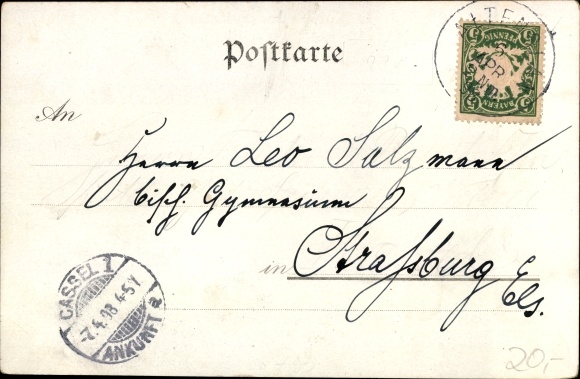 Postkarte
5 PFENNIG 5
BAYERN
5 APR
An
Herrn Leo Salzmann
bisch. Gymnasium
in Strassburg Els.
CASSEL 1
-7.4.98 4-5 N
ANKUNFT a
20,-